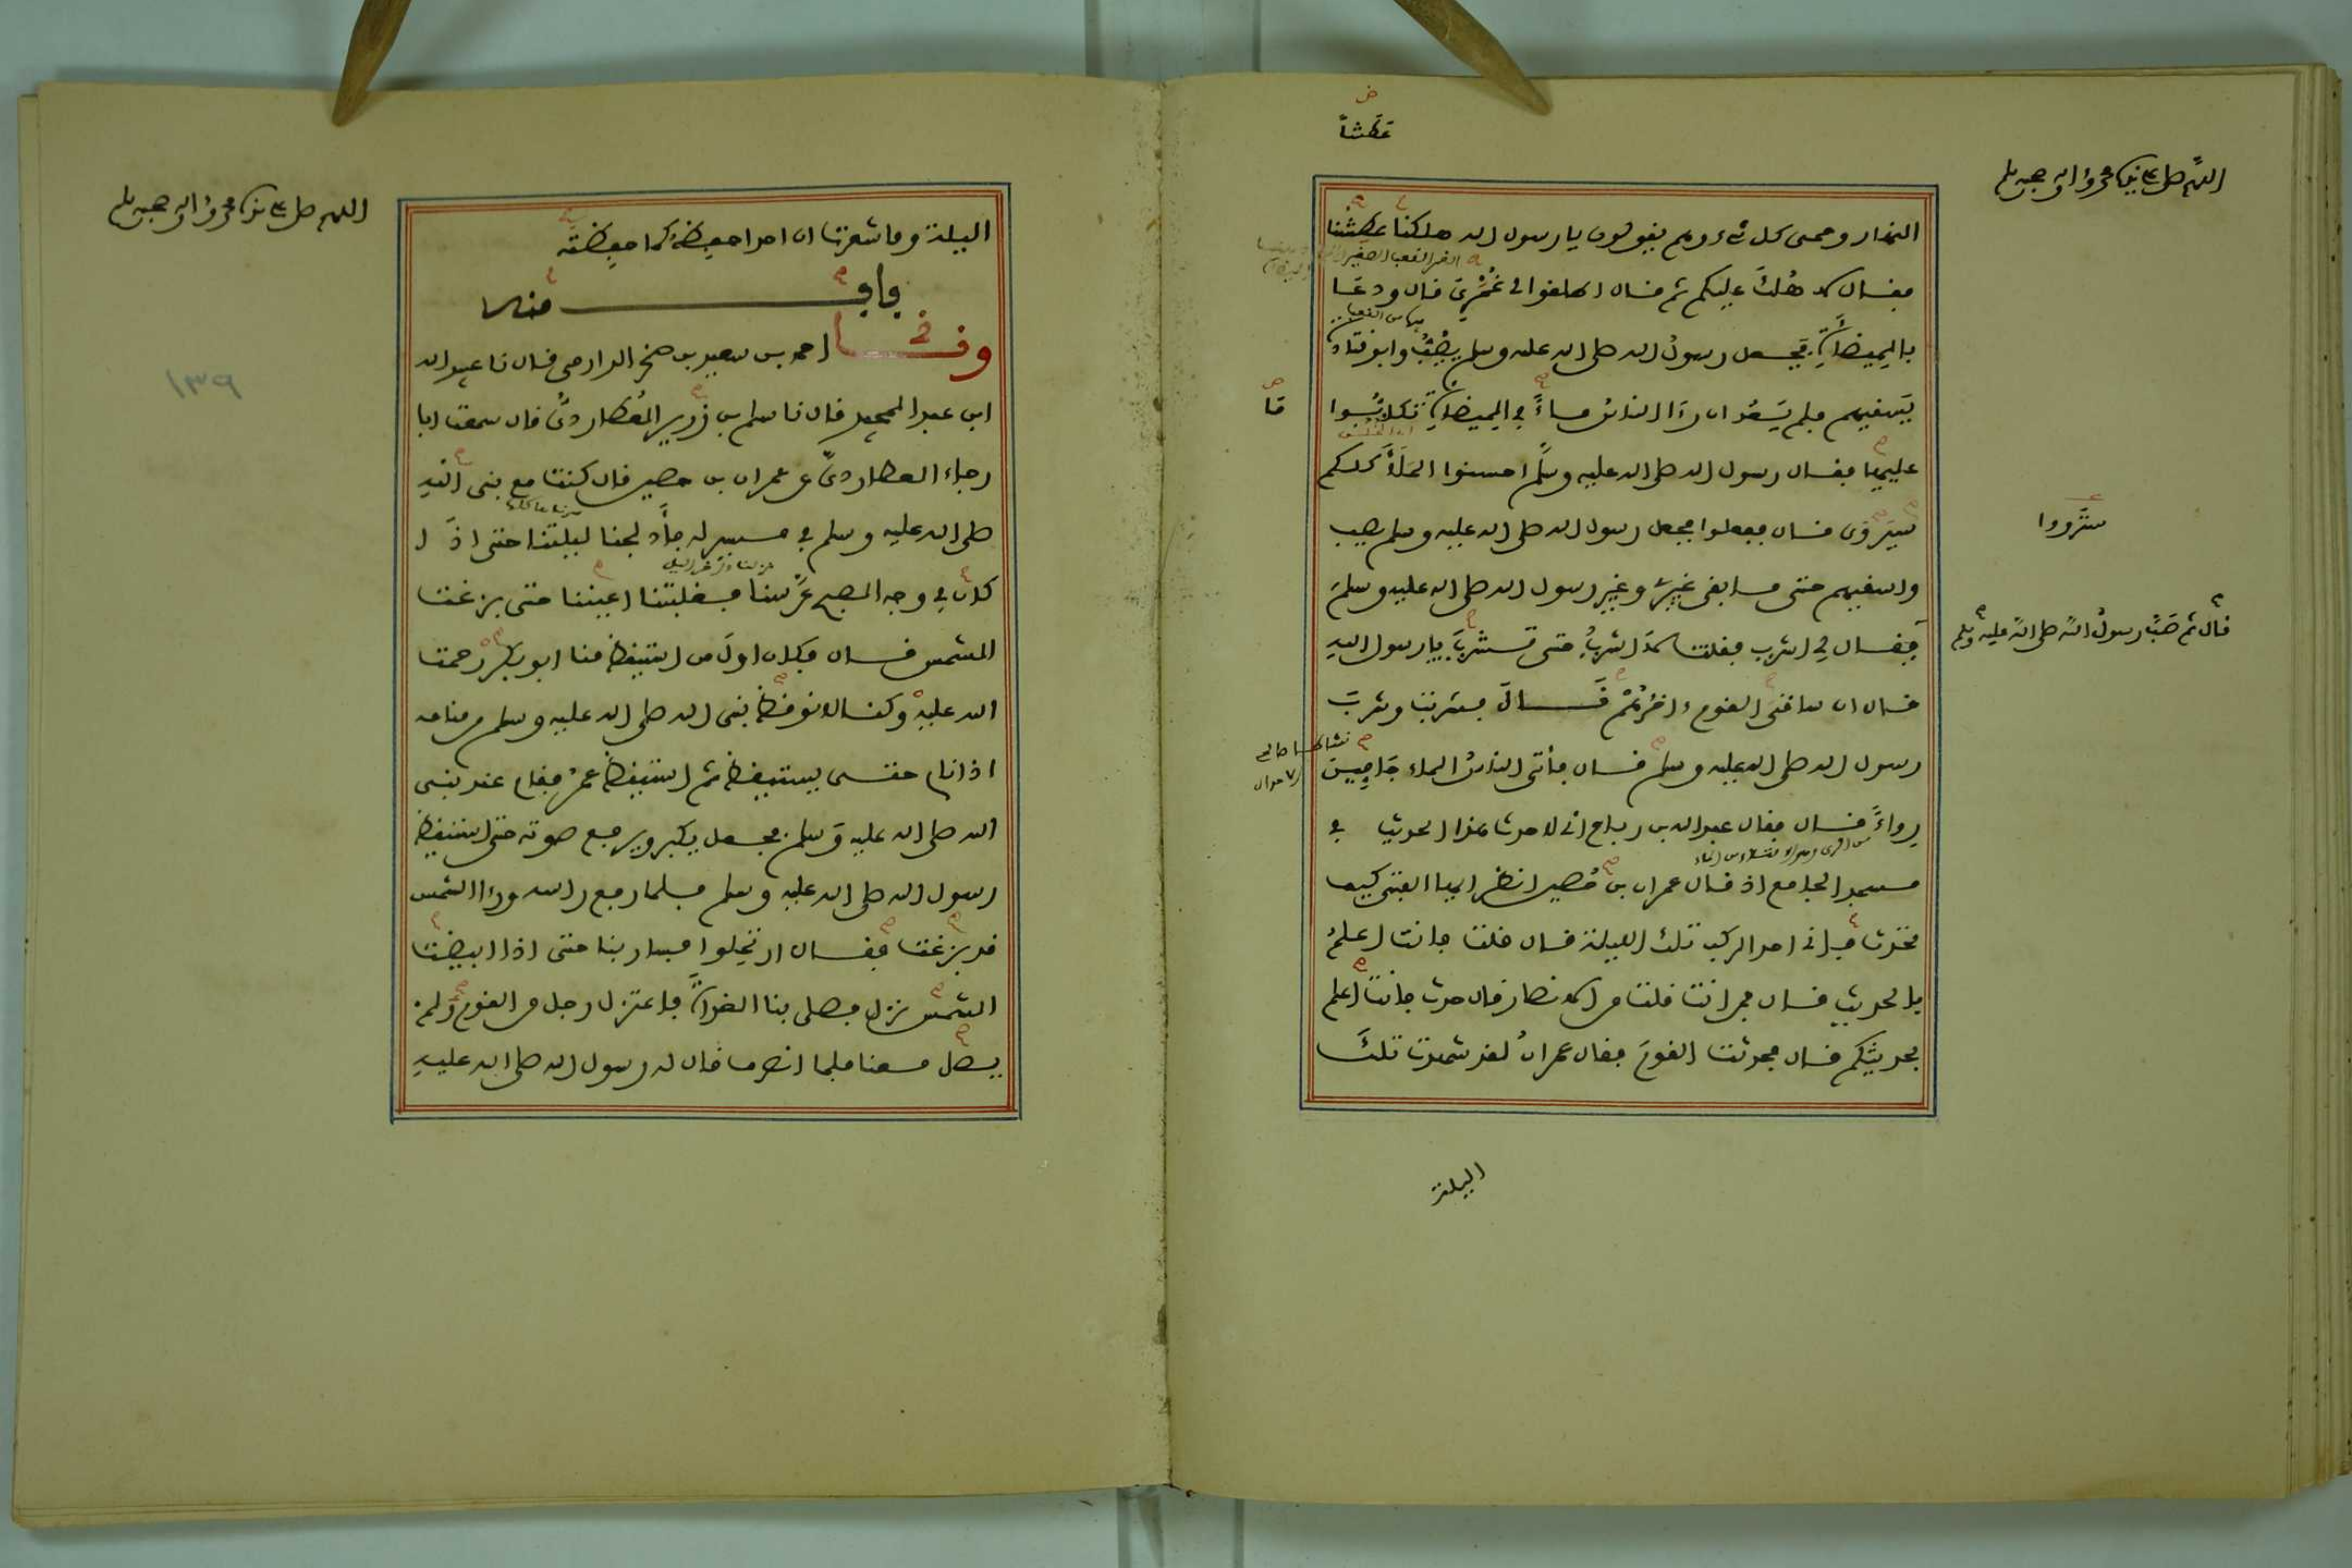 اللهم صل على نبيك محمد واله وصحبه وسلم
عطشا
النهار وحمى كل شيء وهم يقولون يا رسول الله هلكنا عطشنا
فقال لا هُلكَ عليكم ثم قال اطلقوا لي غُمَرِي قال ودعا
بالمِيضأةِ فجعل رسولُ الله صلى الله عليه وسلم يصُبُّ وابو قتادة
يَسقيهم فلم يَعْدُ ان رَءَا الناسُ ماءً في الميضأةِ تكابُّوا
عليها فقال رسول الله صلى الله عليه وسلم احسنوا المَلَأَ كلكم
سيروى قال ففعلوا فجعل رسول الله صلى الله عليه وسلم يصب
واسقيهم حتى ما بقي غيري وغير رسول الله صلى الله عليه وسلم
فقال لي اشرب فقلت لا اشربُ حتى تشربَ يا رسول الله
قال ان ساقي القوم ءاخرُهُمْ قال فشربتُ وشربَ
رسول الله صلى الله عليه وسلم قال فأتى الناسُ الماء جَامِّينَ
رِواءً قال فقال عبد الله بن رباح اني لاحدث هذا الحديث في
مسجد الجامع اذ قال عمران بن حُصين انظر ايها الفتى كيف
تحدث فإني احد الركب تلك الليلة قال قلت فانت اعلمُ
بالحديث قال ممن انت قلت من الانصار قال حدث فانت اعلم
بحديثكم قال فحدثت القومَ فقال عمرانُ لقد شهدت تلك
قا
سترووا
قال ثم صَبَّ رسولُ الله صلى الله عليه وسلم
الليلة
اللهم صل على نبيك محمد واله وصحبه وسلم
١٣٩
الليلة وما شعرت ان احدا حفِظهُ كما حفِظته
باب منه
وحدثنا احمد بن سعيد بن صخر الدارمي قال نا عبيد الله
ابن عبد المجيد قال نا سلم بن زرير العُطاردي قال سمعت ابا
رجاء العطاردي عن عمران بن حصين قال كنت مع نبي الله
صلى الله عليه وسلم في مسير له فأدلجنا ليلتنا حتى اذا
كان في وجه الصبح عَرَّسنا فغلبتنا اعيننا حتى بزغت
الشمس قال فكان اولَ من استيقظ منا ابو بكر رحمت
الله عليه وكنا لا نوقظ نبي الله صلى الله عليه وسلم من منامه
اذا نام حتى يستيقظ ثم استيقظ عمرُ فقام عند نبي
الله صلى الله عليه وسلم فجعل يكبر ويرفع صوته حتى استيقظ
رسول الله صلى الله عليه وسلم فلما رفع راسه ورءا الشمس
قد بزغت فقال ارتحلوا فسار بنا حتى اذا ابيضت
الشمس نزل فصلى بنا الغداةَ فاعتزل رجل من القوم ولم
يصل معنا فلما انصرف قال له رسول الله صلى الله عليه